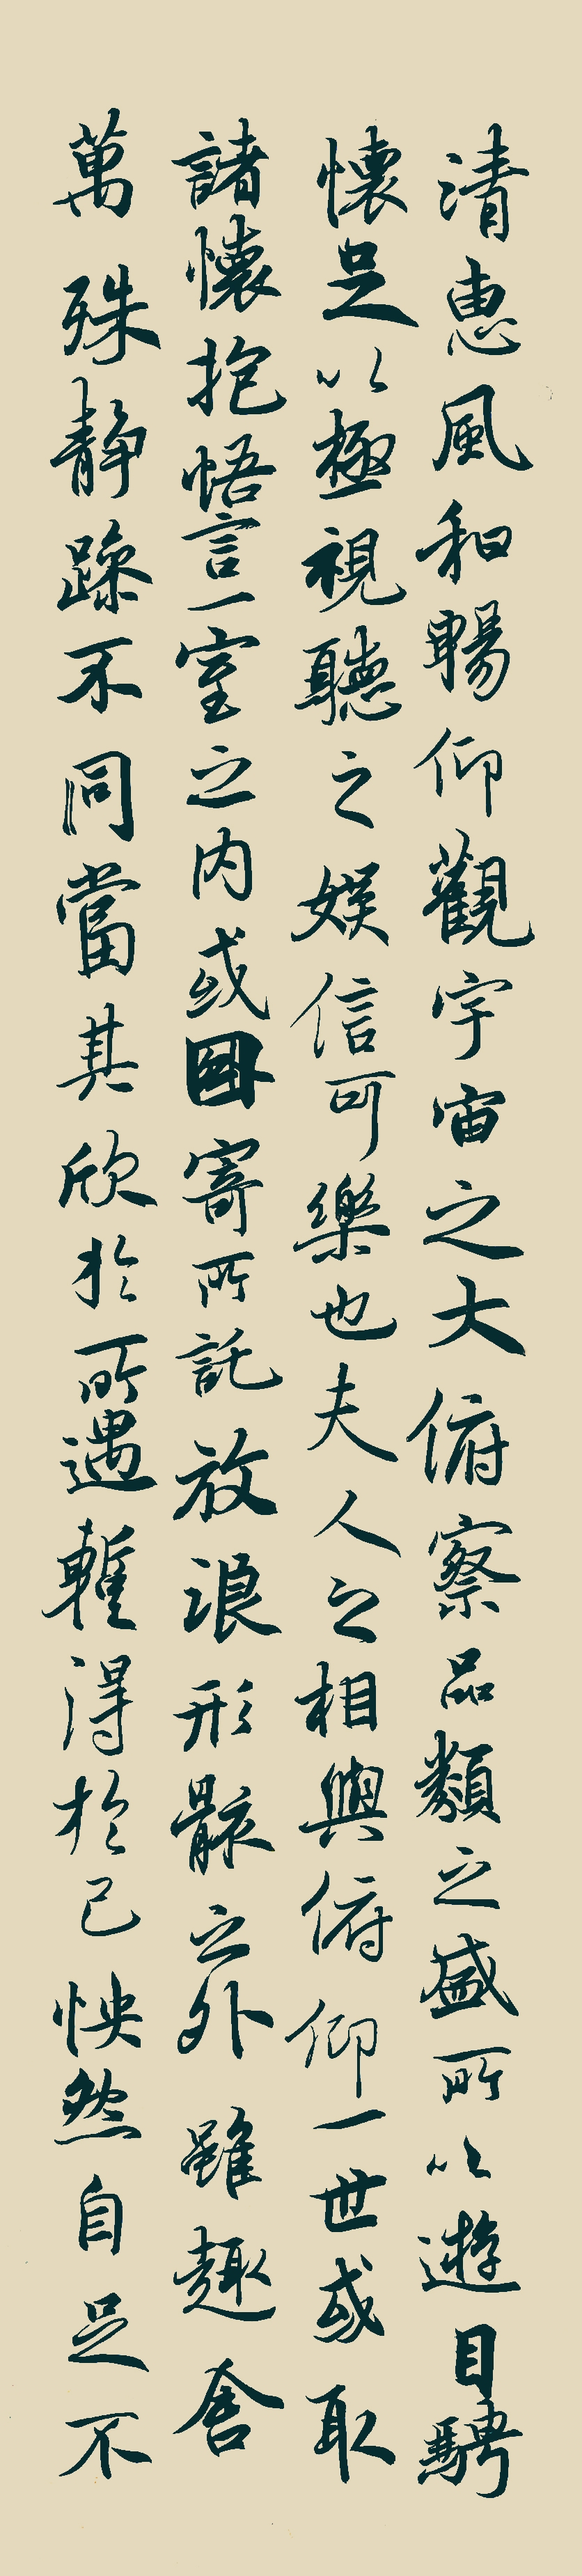 清惠風和暢仰觀宇宙之大俯察品類之盛所以遊目騁
懷足以極視聽之娛信可樂也夫人之相與俯仰一世或取
諸懷抱悟言一室之内或因寄所託放浪形骸之外雖趣舍
萬殊静躁不同當其欣於所遇暫得於己怏然自足不